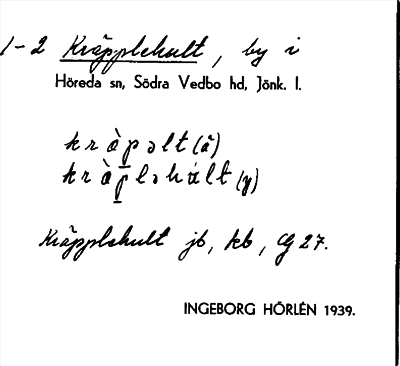 1-2 Kräpplehult, by i
Höreda sn, Södra Vedbo hd, Jönk. l.
kràp̲əlt (ä)
kràp̲ləhált (y)
Kräpplehult jb, kb, G 27.
INGEBORG HÖRLÉN 1939.